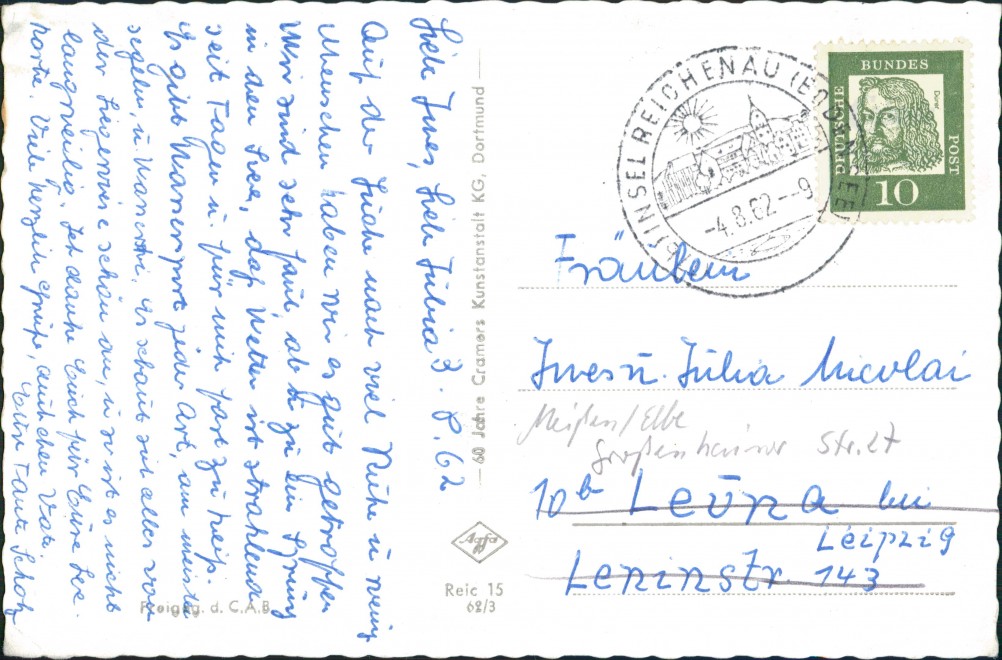 Liebe Ines, liebe Julia 3. 8. 62
Auf der Suche nach viel Ruhe u. wenig
Menschen haben wir es gut getroffen
Wir sind sehr faul, ab u. zu ein Sprung
in den See, das Wetter ist strahlend
seit Tagen u. für mich fast zu heiß.
Es gibt Wassersport jeder Art, am meisten
segeln, u. Wasserski, es schaut sich alles von
der Liegewiese schön an, u. so ist es nicht
langweilig. Ich danke Euch für Eure
Karte. Viele herzliche Grüße, auch den Vati.
Eure Tante
60 Jahre Cramers Kunstanstalt KG, Dortmund
Freigeg. d. C.A.B.
Agfa
Reic 15
62/3
INSEL REICHENAU (BODENSEE)
-4.8.62--9
DEUTSCHE BUNDES POST
Dürer
10
Fräulein
Ines u. Julia Nicolai
Meißen/Elbe
Großenhainer Str. 27
10b Leuna bei
Leipzig
Leninstr. 143